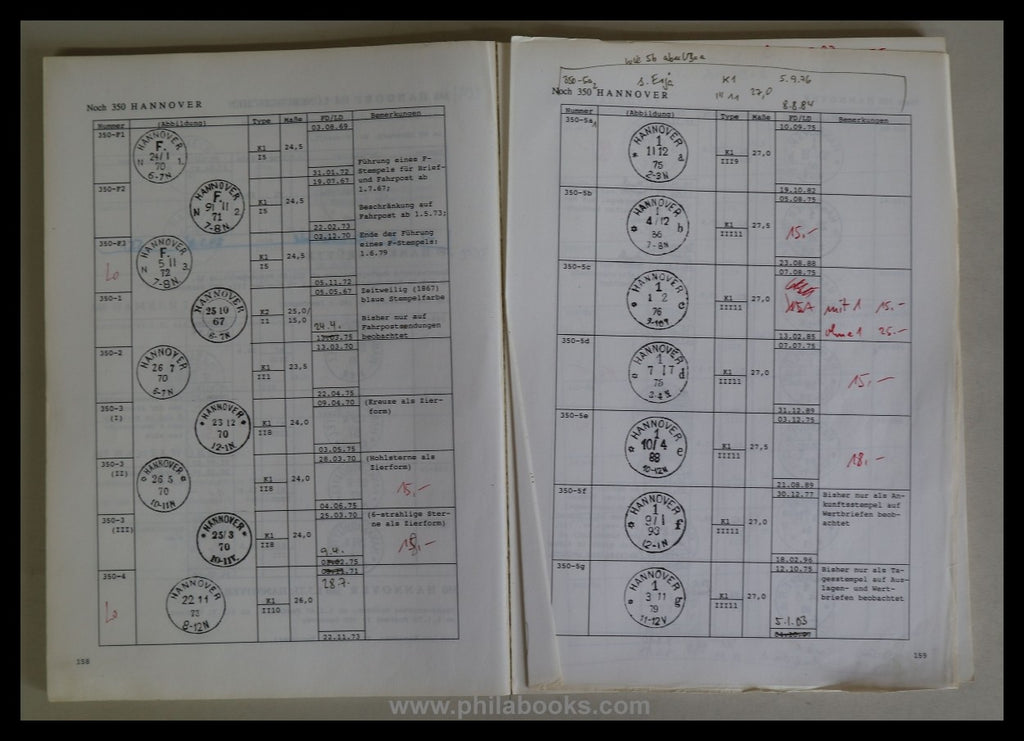 Noch 350 HANNOVER
Nummer (Abbildung) Type Maße FD/LD Bemerkungen
350-F1 HANNOVER F. 24/1 70 6-7N N 1 K1 I5 24,5 03.08.69 31.01.72
Führung eines F-
Stempels für Brief-
und Fahrpost ab
1.7.67;
350-F2 HANNOVER F. 9/ 11 71 7-8N N 2 K1 I5 24,5 19.07.67 22.02.73
Beschränkung auf
Fahrpost ab 1.5.73;
350-F3 HANNOVER F. 5 11 72 7-8N N 3 K1 I5 24,5 02.12.70 05.11.72
Ende der Führung
eines F-Stempels:
1.6.79
Lo
350-1 HANNOVER 25 10 67 6-7N K2 I1 25,0/ 15,0 05.05.67 24.4.
Zeitweilig (1867)
blaue Stempelfarbe
Bisher nur auf
Fahrpostsendungen
beobachtet
350-2 HANNOVER 26 7 70 6-7N K1 II1 23,5 13.03.70 22.04.75
350-3 (I) HANNOVER 23 12 70 12-1N K1 II8 24,0 09.04.70 03.05.75
(Kreuze als Zier-
form)
350-3 (II) HANNOVER 26 5 70 10-11N K1 II8 24,0 28.03.70 04.06.75
(Hohlsterne als
Zierform)
15,-
350-3 (III) HANNOVER 25/3 70 K1 II8 24,0 25.03.70 9.4.
(6-strahlige Ster-
ne als Zierform)
350-4 HANNOVER 22 11 73 8-12N K1 II10 26,0 28.7. 22.11.73
Lo
158
350-5a2 K1 5.9.76
27,0 8.8.84
Noch 350 HANNOVER
Nummer (Abbildung) Type Maße FD/LD Bemerkungen
350-5a1 HANNOVER 1 11 12 75 2-3N a K1 III9 27,0 10.09.75 19.10.82
350-5b HANNOVER 1 4/12 86 7-8N b K1 III11 27,5 05.08.75 23.08.88
15.-
350-5c HANNOVER 1 2 76 c K1 III11 27,0 07.08.75 13.02.85
mit 1 15.-
ohne 1 25.-
350-5d HANNOVER 1 7 17 75 3-4N d K1 III11 27,0 07.07.75 31.12.89
15.-
350-5e HANNOVER 1 10/4 88 10-12N e K1 III11 27,5 03.12.75 21.08.89
18.-
350-5f HANNOVER 1 9/1 93 12-1N f K1 III11 27,0 30.12.77 18.02.96
Bisher nur als An-
kunftsstempel auf
Wertbriefen beob-
achtet
350-5g HANNOVER 1 3 11 79 11-12V g K1 III11 27,0 12.10.75 5.1.03
Bisher nur als Ta-
gesstempel auf Aus-
lagen- und Wert-
briefen beobachtet
159
www.philabooks.com